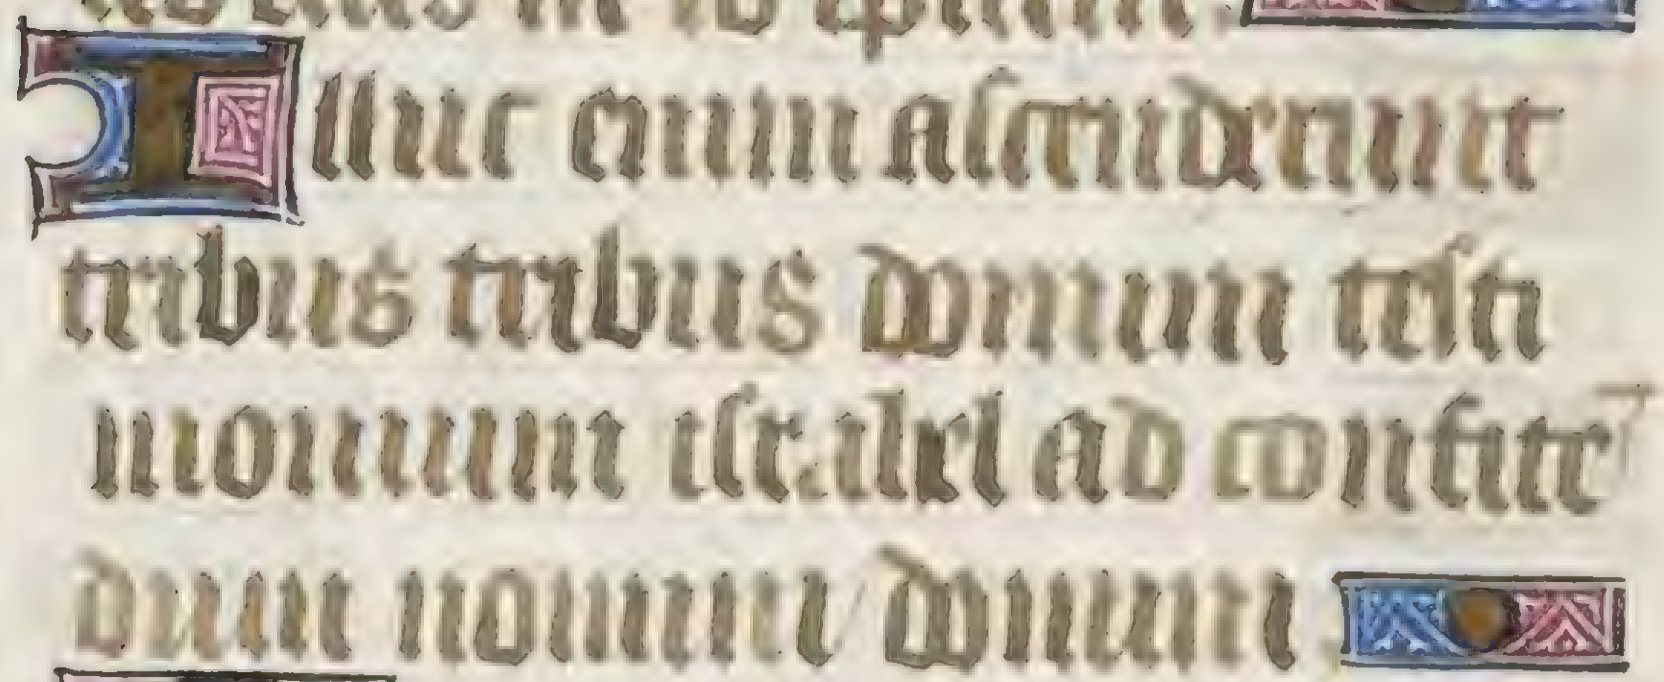 eius in id ipsum.
Illuc enim ascenderunt
tribus tribus domini testi
monium israhel ad confiten
dum nomini domini